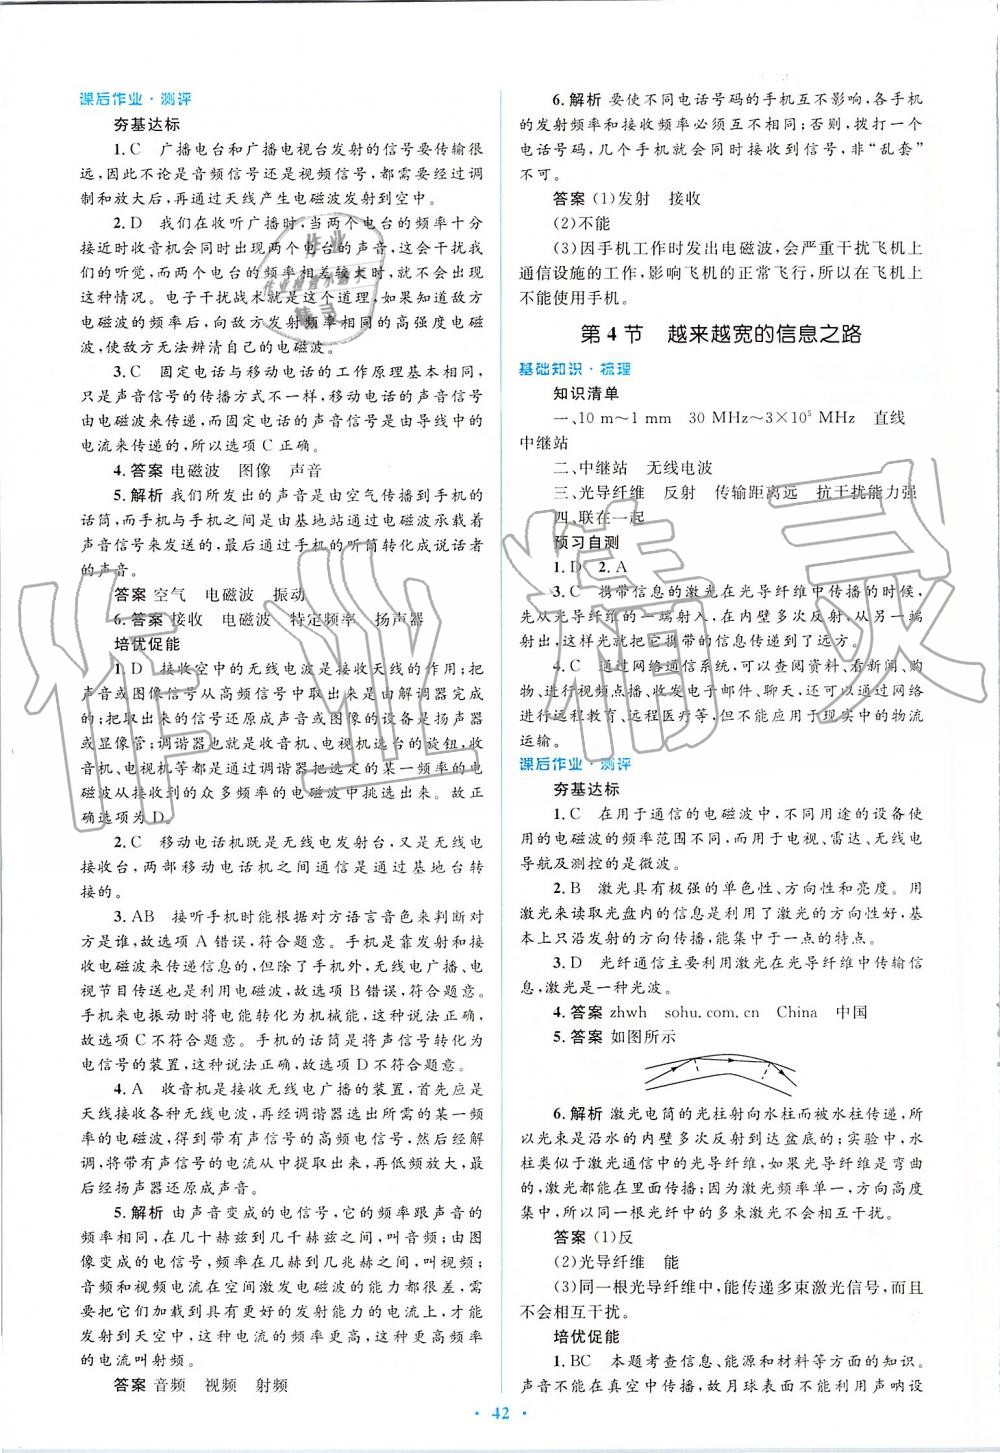 课后作业·测评
夯基达标
1.C 广播电台和广播电视台发射的信号要传输很
远,因此不论是音频信号还是视频信号,都需要经过调
制和放大后,再通过天线产生电磁波发射到空中。
2.D 我们在收听广播时,当两个电台的频率十分
接近时收音机会同时出现两个电台的声音,这会干扰我
们的听觉,而两个电台的频率相差较大时,就不会出现
这种情况。电子干扰战术就是这个道理,如果知道敌方
电磁波的频率后,向敌方发射频率相同的高强度电磁波,
使敌方无法辨清自己的电磁波。
3.C 固定电话与移动电话的工作原理基本相同,
只是声音信号的传播方式不一样,移动电话的声音信号
由电磁波来传递,而固定电话的声音信号是由导线中的
电流来传递的,所以选项 C 正确。
4.答案 电磁波 图像 声音
5.解析 我们所发出的声音是由空气传播到手机的
话筒,而手机与手机之间是由基地站通过电磁波承载着
声音信号来发送的,最后通过手机的听筒转化成说话者
的声音。
答案 空气 电磁波 振动
6.答案 接收 电磁波 特定频率 扬声器
培优促能
1.D 接收空中的无线电波是接收天线的作用;把
声音或图像信号从高频信号中取出来是由解调器完成
的;把取出来的信号还原成声音或图像的设备是扬声器
或显像管;调谐器也就是收音机、电视机选台的旋钮,收
音机、电视机等都是通过调谐器把某一个频率的电
磁波从接收到的众多频率的电磁波中挑选出来。故正
确选项为 D。
2.C 移动电话机既是无线电发射台,又是无线电
接收台,两部移动电话机之间通信是通过基地台转
接的。
3.AB 接听手机时能根据对方语言音色来判断对
方是谁,故选项 A 错误,符合题意。手机是靠发射和接
收电磁波来传递信息的,但除了手机外,无线电广播、电
视节目传送也是利用电磁波,故选项 B 错误,符合题意。
手机来电振动时将电能转化为机械能,这种说法正确,
故选项 C 不符合题意。手机的话筒是将声信号转化为
电信号的装置,这种说法正确,故选项 D 不符合题意。
4.A 收音机是接收无线电广播的装置,首先应是
天线接收各种无线电波,再经调谐器选出所需的某一频
率的电磁波,得到带有声信号的高频电信号,然后经解
调,将带有声信号的电流从中提取出来,再低频放大,最
后经扬声器还原成声音。
5.解析 由声音变成的电信号,它的频率跟声音的
频率相同,在几十赫兹到几千赫兹,叫音频;由图
像变成的电信号,频率在几赫到几兆赫之间,叫视频;
音频和视频电流在空间激发电磁波的能力都很差,需
要把它们加载到具有更好的发射能力的电流上,才能
发射到天空中,这种电流的频率更高,这种更高频率
的电流叫射频。
答案 音频 视频 射频
6.解析 要使不同电话号码的手机互不影响,各手机
的发射频率和接收频率必须互不相同;否则,拨打一个
电话号码,几个手机就会同时接收到信号,非“乱套”
不可。
答案 (1)发射 接收
(2)不能
(3)因手机工作时发出电磁波,会严重干扰飞机上
通信设施的工作,影响飞机的正常飞行,所以在飞机上
不能使用手机。
第 4 节 越来越宽的信息之路
基础知识·梳理
知识清单
一、10 m～1 mm 30 MHz～3×10⁵ MHz 直线
中继站
二、中继站 无线电波
三、光导纤维 反射 传输距离远 抗干扰能力强
四、联在一起
预习自测
1.D 2.A
3.C 携带信息的激光在光导纤维中传播的时候,
先从光导纤维的一端射入,在内壁多次反射,从另一端
射出,这样就把它携带的信息传递到了远方。
4.C 通过网络通信系统,可以查阅资料、看新闻、购
物、进行视频点播、收发电子邮件、聊天,还可以通过网络
进行远程教育、远程医疗等,但不能应用于现实中的物流
运输。
课后作业·测评
夯基达标
1.C 在用于通信的电磁波中,不同用途的设备使
用的电磁波的频率范围不同,而用于电视、雷达、无线电
导航及测控的是微波。
2.B 激光具有极强的单色性、方向性和亮度。用
激光来读取光盘内的信息是利用了激光的方向性好,基
本上只沿发射的方向传播,能集中于一点的特点。
3.D 光纤通信主要利用激光在光导纤维中传输信
息,激光是一种光波。
4.答案 zhwh sohu.com.cn China 中国
5.答案 如图所示
6.解析 激光电筒的光柱射向水柱而被水柱传递,所
以光束是沿水的内壁多次反射到达盆底的;实验中,水
柱类似于激光通信中的光导纤维,如果光导纤维是弯曲
的,激光都能在里面传播;因为激光频率单一,方向高度
集中,所以同一根光纤中的多束激光不会相互干扰。
答案 (1)反
(2)光导纤维 能
(3)同一根光导纤维中,能传递多束激光信号,而且
不会相互干扰。
培优促能
1.BC 本题考查信息、能源和材料等方面的知识。
声音不能在真空中传播,故月球表面不能利用声呐设
· 42 ·
作业精灵